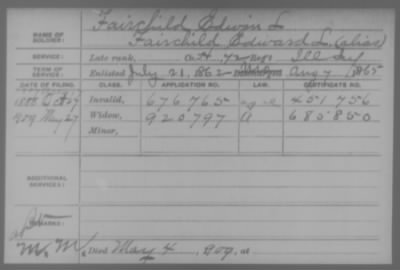 Fairchild Edwin L
NAME OF SOLDIER: Fairchild Edward L. (alias)
SERVICE: Late rank, Co. H, 72 Reg't Ill Inf
TERM OF SERVICE: Enlisted July 21, 1862 Discharged Aug 7, 1865
DATE OF FILING. CLASS. APPLICATION NO. LAW. CERTIFICATE NO.
1888 Invalid, 676,765 451,756
1909 May 27 Widow, 920,797 685,850
Minor,
ADDITIONAL SERVICES:
REMARKS:
Died May 4, 1909, at